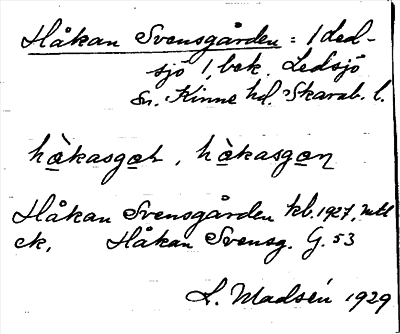 Håkan Svensgården : 1 Led-
sjö 1, bek. Ledsjö
sn. Kinne hd. Skarab. l.
hàkasgat, hàkasgan
Håkan Svensgården kb. 1927,
ek, Håkan Svensg. G. 53
L. Madsén 1929